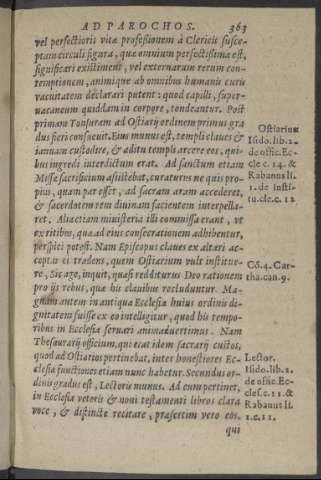 AD PAROCHOS. 363
vel perfectioris vitæ professionem à Clericis susce-
ptam circuli figura, quæ omnium perfectissima est,
significari existiment, vel externarum rerum con-
temptionem, animique ab omnibus humanis curis
vacuitatem declarari putent: quod capilli, super-
uacaneum quiddam in corpore, tondeantur. Post
primam Tonsuram ad Ostiarij ordinem primus gra
dus fieri consueuit. Eius munus est, templi claues &
ianuam custodire, & aditu templi arcere eos, qui-
bus ingredi interdictum erat. Ad sanctum etiam
Missæ sacrificium assistebat, curaturus ne quis pro-
pius, quam par esset, ad sacram aram accederet,
& sacerdotem rem diuinam facientem interpella-
ret. Alia etiam ministeria illi commissa erant, vt
ex ritibus, quæ ad eius consecrationem adhibentur,
perspici potest. Nam Episcopus claues ex altari ac-
ceptas ei tradens, quem Ostiarium vult institue-
re, Sic age, inquit, quasi redditurus Deo rationem
pro ijs rebus, quæ his clauibus recluduntur. Ma-
gnam autem in antiqua Ecclesia huius ordinis di-
gnitatem fuisse ex eo intelligitur, quod his tempo-
ribus in Ecclesia seruari animaduertimus. Nam
Thesaurarij officium, qui erat idem sacrarij custos,
quod ad Ostiarios pertinebat, inter honestiores Ec-
clesiæ functiones etiam nunc habetur. Secundus or-
dinis gradus est, Lectoris munus. Ad eum pertinet,
in Ecclesia veteris & noui testamenti libros clara
voce, & distincte recitare, præsertim vero eos,
qui
Ostiarius
Isido. lib. 2.
de offic. Ec-
cle c. 14. &
Rabanus li.
1. de insti-
tu. cle. c. 12
Cõ. 4. Car-
tha. can. 9.
Lector.
Isido. lib. 2.
de offic. Ec-
cles. c. 11. &
Rabanus li.
1. c. 11.